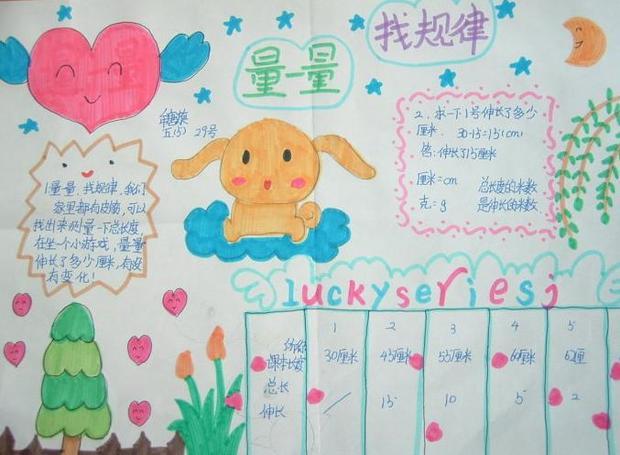 量一量
量一量
找规律
五(5) 29号
1量量,找规律,我们
家里都有皮筋,可以
找出来测量一下总长度,
在坐个小游戏,量量
伸长了多少厘米,有没
有变化!
2、求一下1号伸长了多少
厘米. 30-15=15(cm)
答:伸长了15厘米
厘米=cm 总长度的米数
克=g 是伸长的米数
luckyseriesj
1 2 3 4 5
课本长度 30厘米 45厘米 55厘米 60厘米 62厘
总长
伸长 / 15 10 5 2